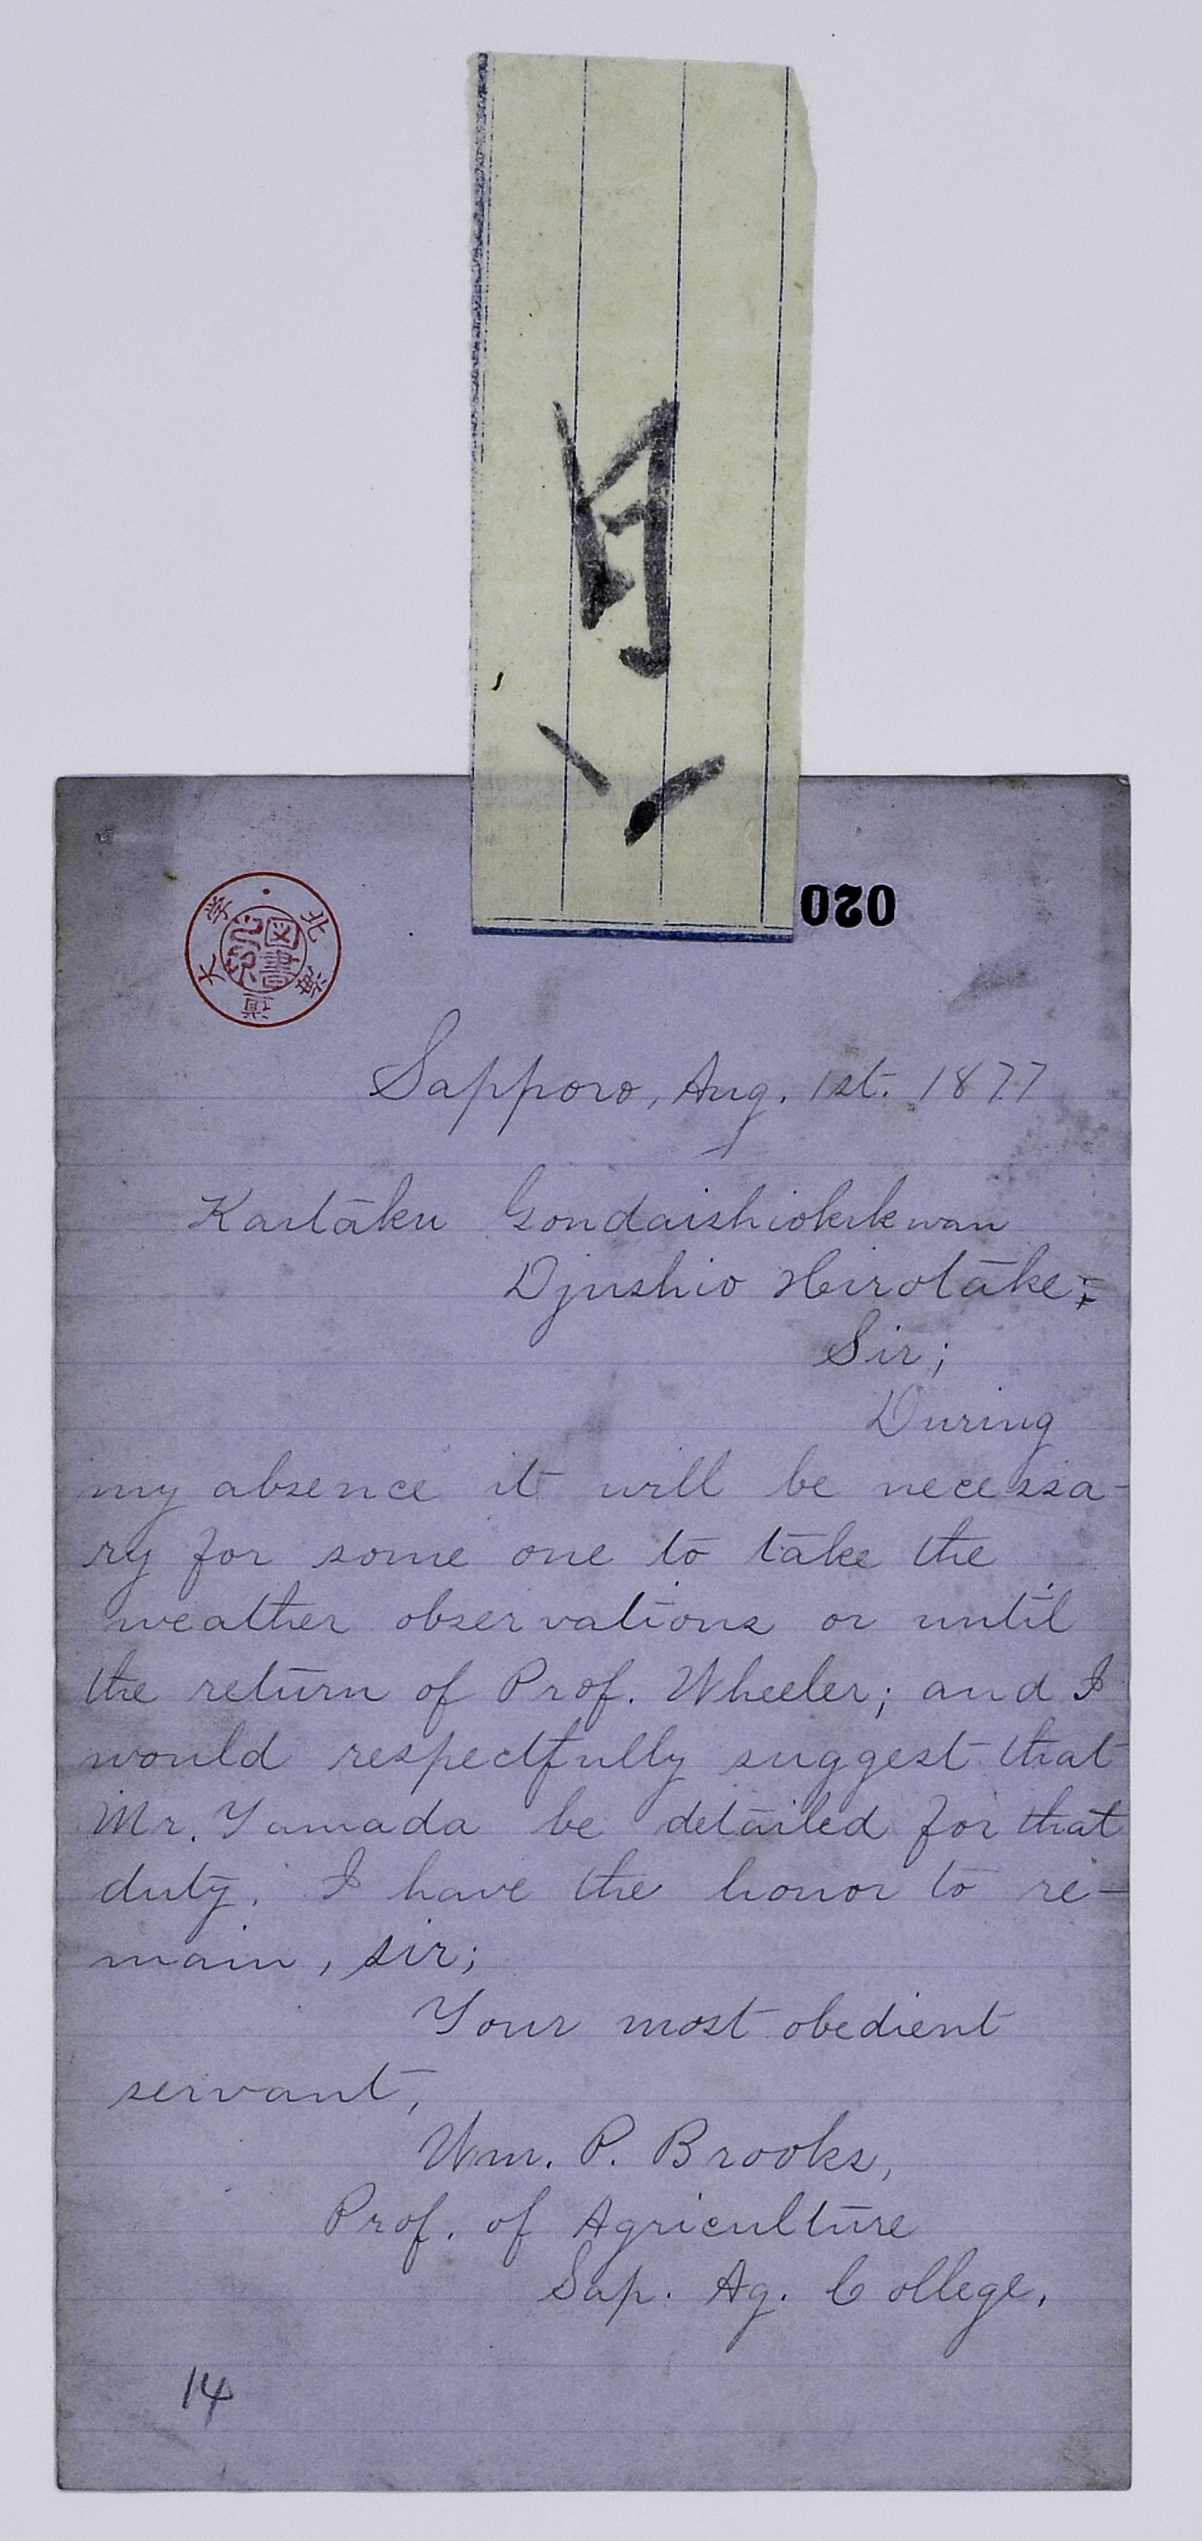 八月
020
北海道大学
図書
Sapporo, Aug. 1st. 1877
Kaitaku Gondaishiokikwan
Djushio Hirotake;
Sir;
During
my absence it will be necessa-
ry for some one to take the
weather observations or until
the return of Prof. Wheeler; and I
would respectfully suggest that
Mr. Yamada be detailed for that
duty. I have the honor to re-
main, sir;
Your most obedient
servant,
Wm. P. Brooks,
Prof. of Agriculture
Sap. Ag. College.
14